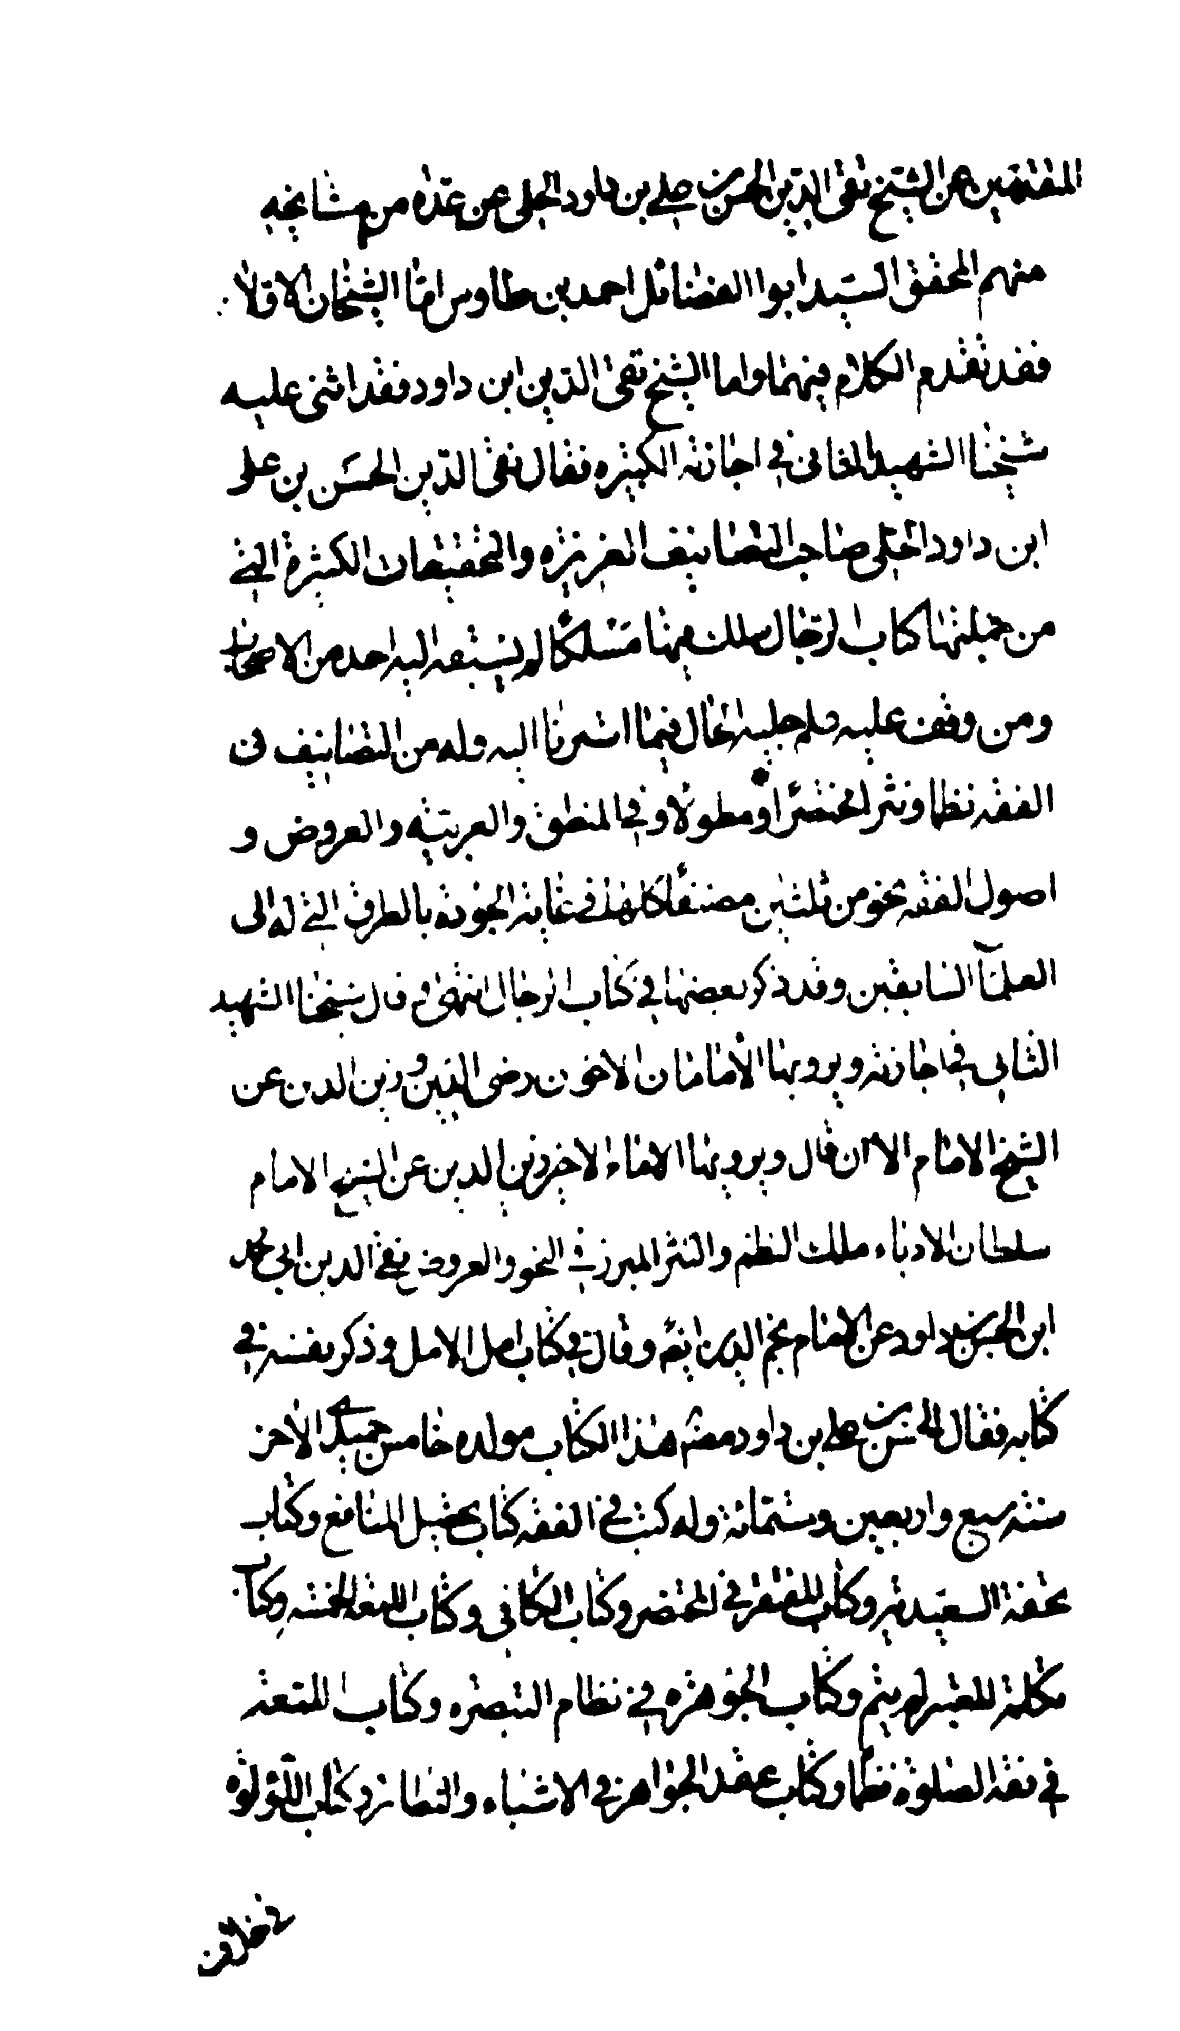 المتقدمين عن الشيخ تقى الدين الحسن بن على بن داود الحلى عن عدة من مشايخه
منهم المحقق السيد ابوا الفضائل احمد بن طاوس اما الشيخان الاولان
فقد تقدم الكلام فيهما واما الشيخ تقى الدين ابن داود فقد اثنى عليه
شيخنا الشهيد الثانى في اجازته الكبيره فقال تقى الدين الحسن بن على
ابن داود الحلى صاحب التصانيف الغزيزه والتحقيقات الكثيرة التي
من جملتها كتاب الرجال سلك فيها مسلكا لم يسبقه اليه احد من الاصحاب
ومن وقف عليه علم جليه الحال فيما اشرنا اليه وله من التصانيف في
الفقه نظما ونثرا مختصرا او مطولا وفي المنطق والعربيه والعروض و
اصول الفقه نحو من ثلثين مصنفا كلها في غاية الجوده بالطرق التي له الى
العلماء السابقين وقد ذكر بعضها في كتاب الرجال انتهى وقال شيخنا الشهيد
الثانى في اجازته ويرويها الامامان الاخوان رضى الدين وزين الدين عن
الشيخ الامام الا ان قال ويرويها الامام الاخر زين الدين عن الشيخ الامام
سلطان الادباء ملك النظم والنثر المبرز في النحو والعروض تقى الدين ابى محمد
ابن الحسن بن داود عن الامام نجم الدين ايضا وقال في كتاب امل الامل وذكر نفسه في
كتابه فقال الحسن بن على بن داود مصنف هذا الكتاب مولده خامس جميدى الاخر
سنته سبع واربعين وستمائة وله كتب في الفقه كتاب تحصيل المنافع وكتاب
تحفة السعيديه وكتاب المقتصر في المختصر وكتاب الكافي وكتاب اللمعة الخمسه وكتاب
مكلمة المعتبر لم يتم وكتاب الجوهره في نظام التبصره وكتاب المتعة
في فقه الصلوة نظما وكتاب عقد الجواهر في الاشباه والنظائر وكتاب اللؤلؤه
في خلاف